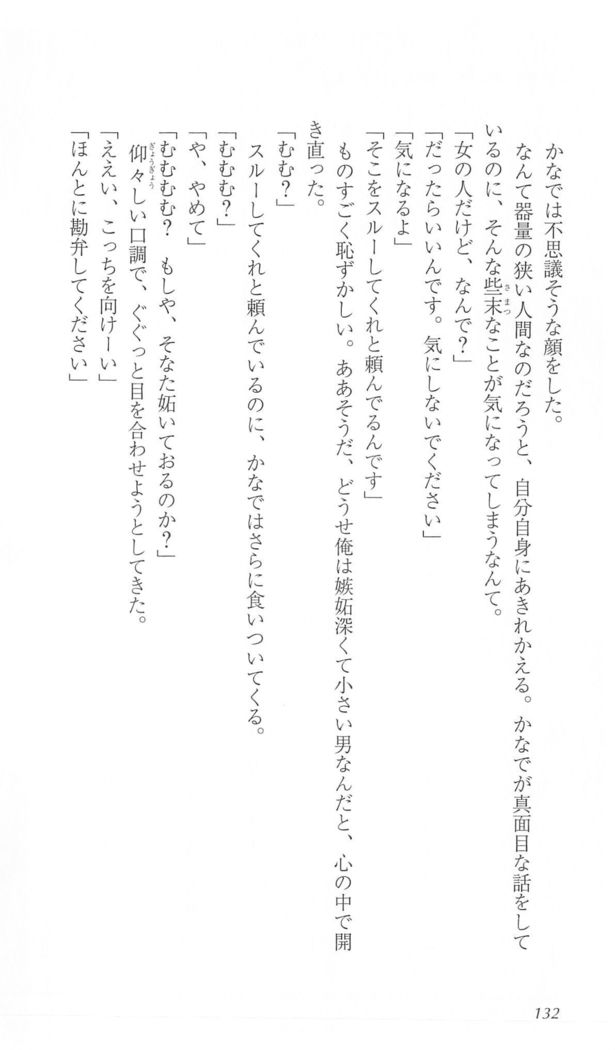 かなでは不思議そうな顔をした。
なんて器量の狭い人間なのだろうと、自分自身にあきれかえる。かなでが真面目な話をして
いるのに、そんな些末なことが気になってしまうなんて。
「女の人だけど、なんで？」
「だったらいいんです。気にしないでください」
「気になるよ」
「そこをスルーしてくれと頼んでるんです」
ものすごく恥ずかしい。ああそうだ、どうせ俺は嫉妬深くて小さい男なんだと、心の中で開
き直った。
「むむ？」
スルーしてくれと頼んでいるのに、かなではさらに食いついてくる。
「むむむ？」
「や、やめて」
「むむむむ？　もしや、そなた妬いておるのか？」
仰々しい口調で、ぐぐっと目を合わせようとしてきた。
「ええい、こっちを向けーい」
「ほんとに勘弁してください」
さまつ
ぎょうぎょう
132